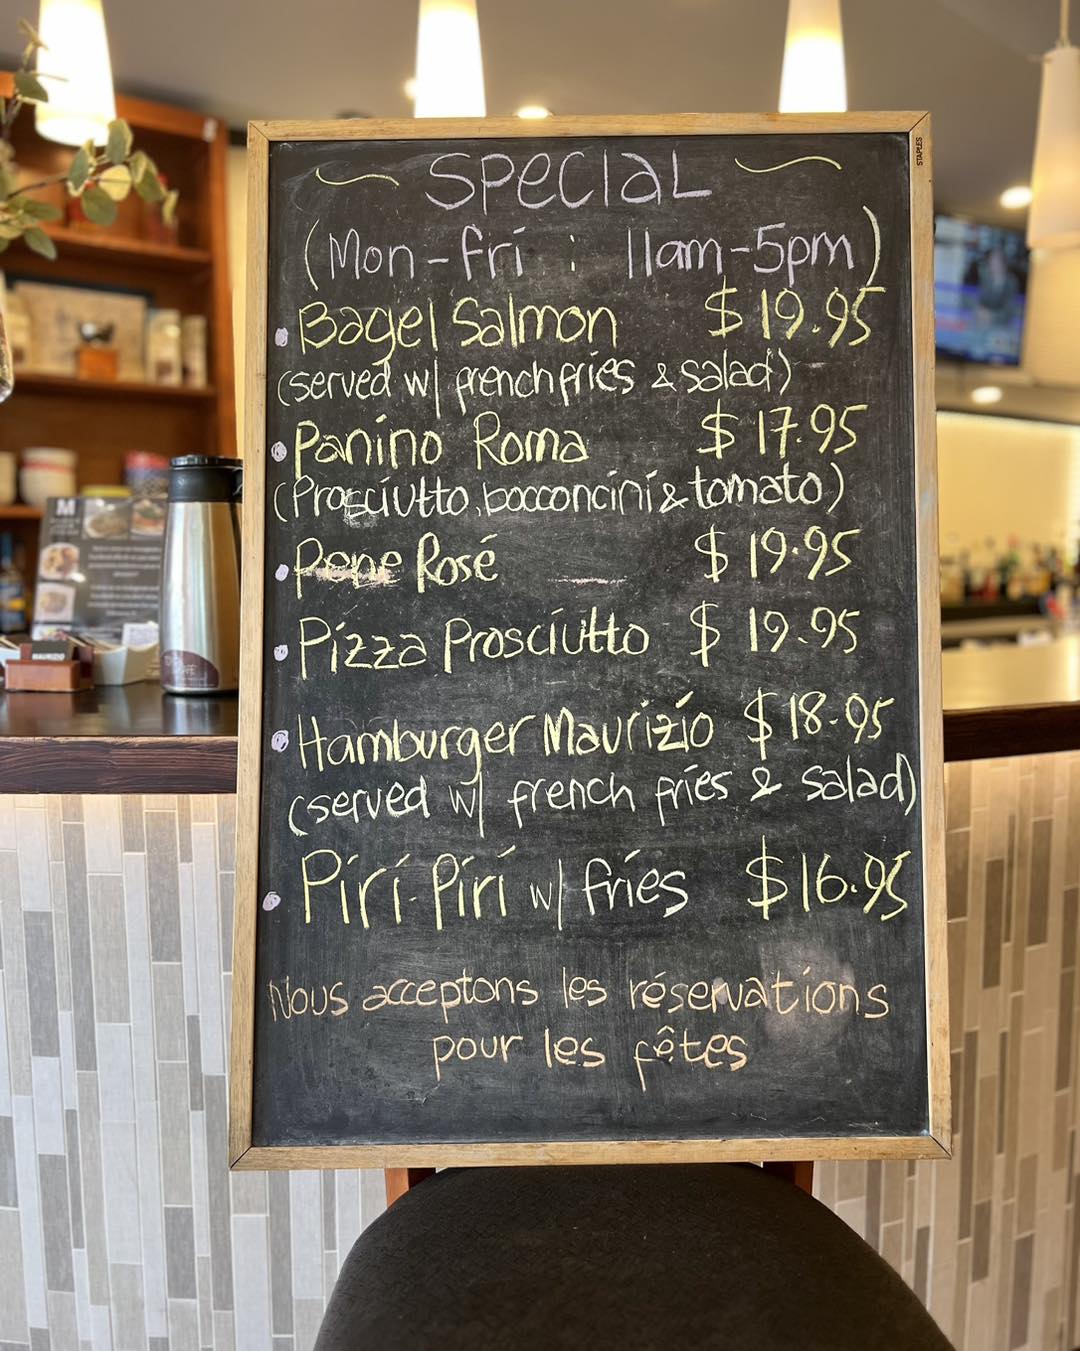 STAPLES
SPECIAL
(Mon-Fri : 11am-5pm)
Bagel Salmon $19.95
(served w/ french fries & salad)
Panino Roma $17.95
(Prosciutto, bocconcini & tomato)
Pene Rosé $19.95
Pizza Prosciutto $19.95
Hamburger Maurizio $18.95
(served w/ french fries & salad)
Piri-Piri w/ fries $16.95
Nous acceptons les réservations
pour les fêtes
M
MAURIZIO